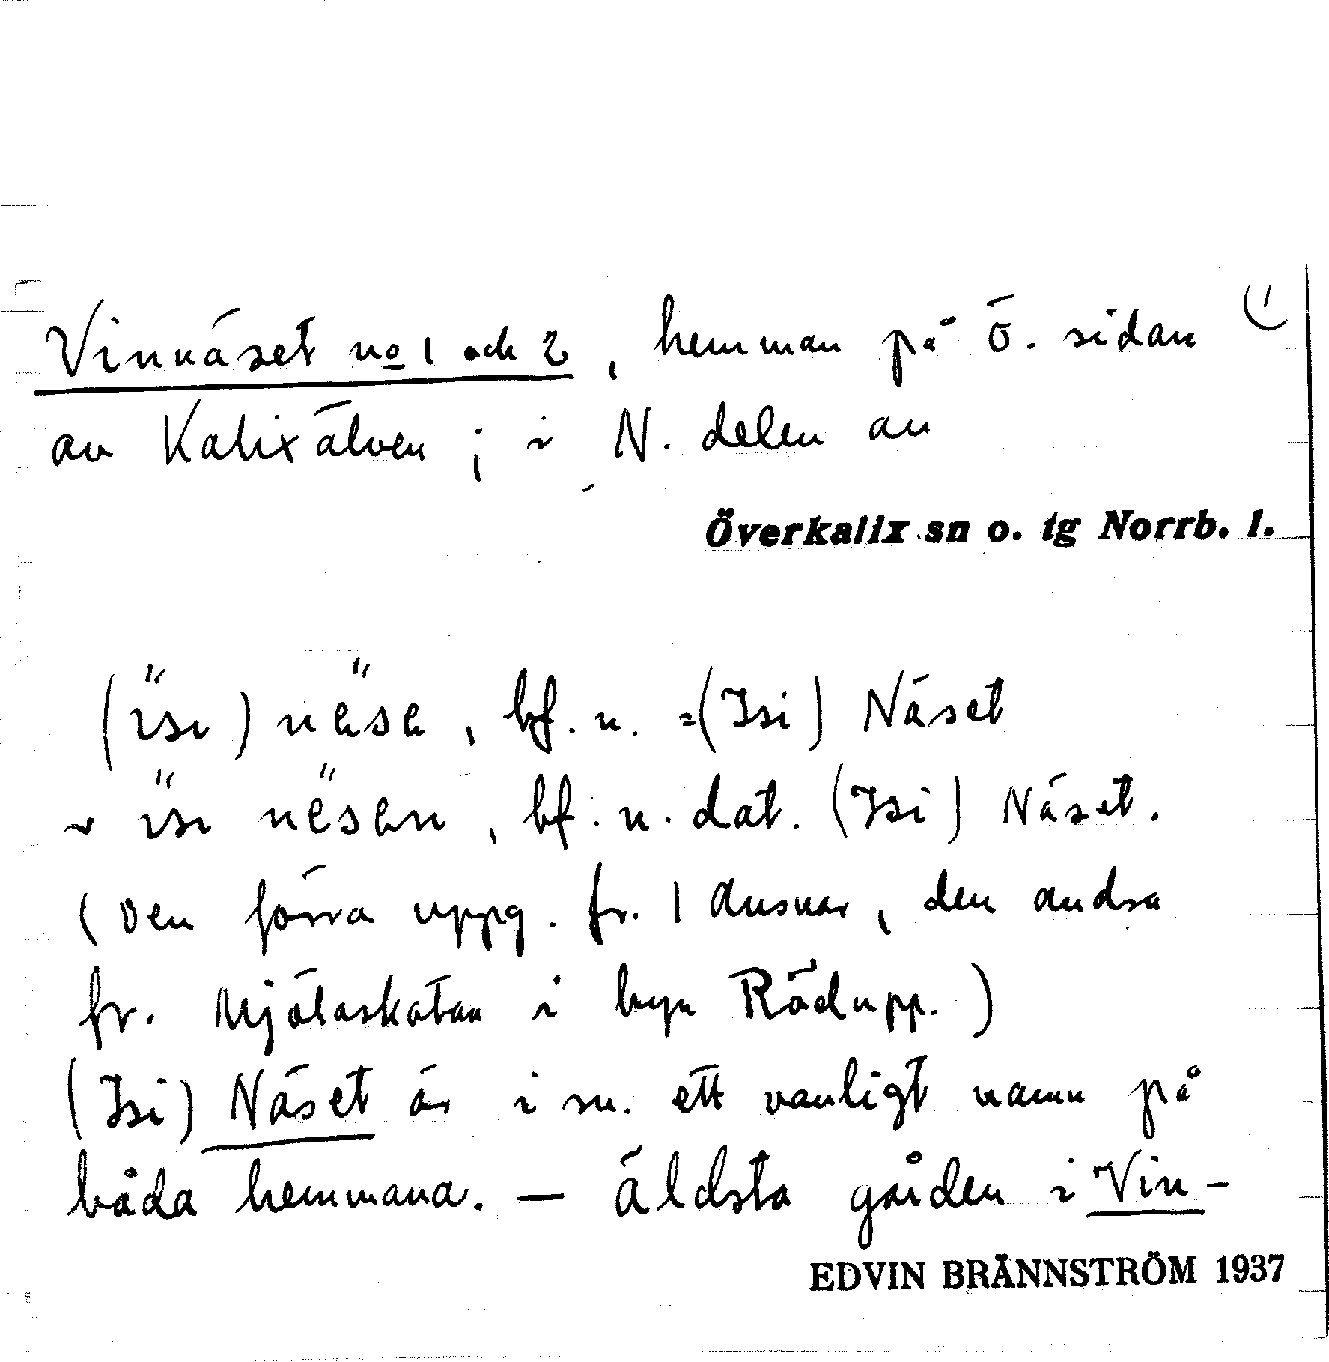 Vinnäset no 1 och 2, hemman på ö. sidan
1)
av Kalixälven; i N. delen av
Överkalix sn o. tg Norrb. l.
(ïsı) näsa, bf. n. =(Isi) Näset
~ ïsı nësen, bf. n. dat. (Isi) Näset.
(Den förra uppg. fr. Ansvar, den andra
fr. Mjölaskatan i byn Rödupp.)
(Isi) Näset är i sn. ett vanligt namn på
båda hemmana. — Äldsta gården i Vin-
EDVIN BRÄNNSTRÖM 1937